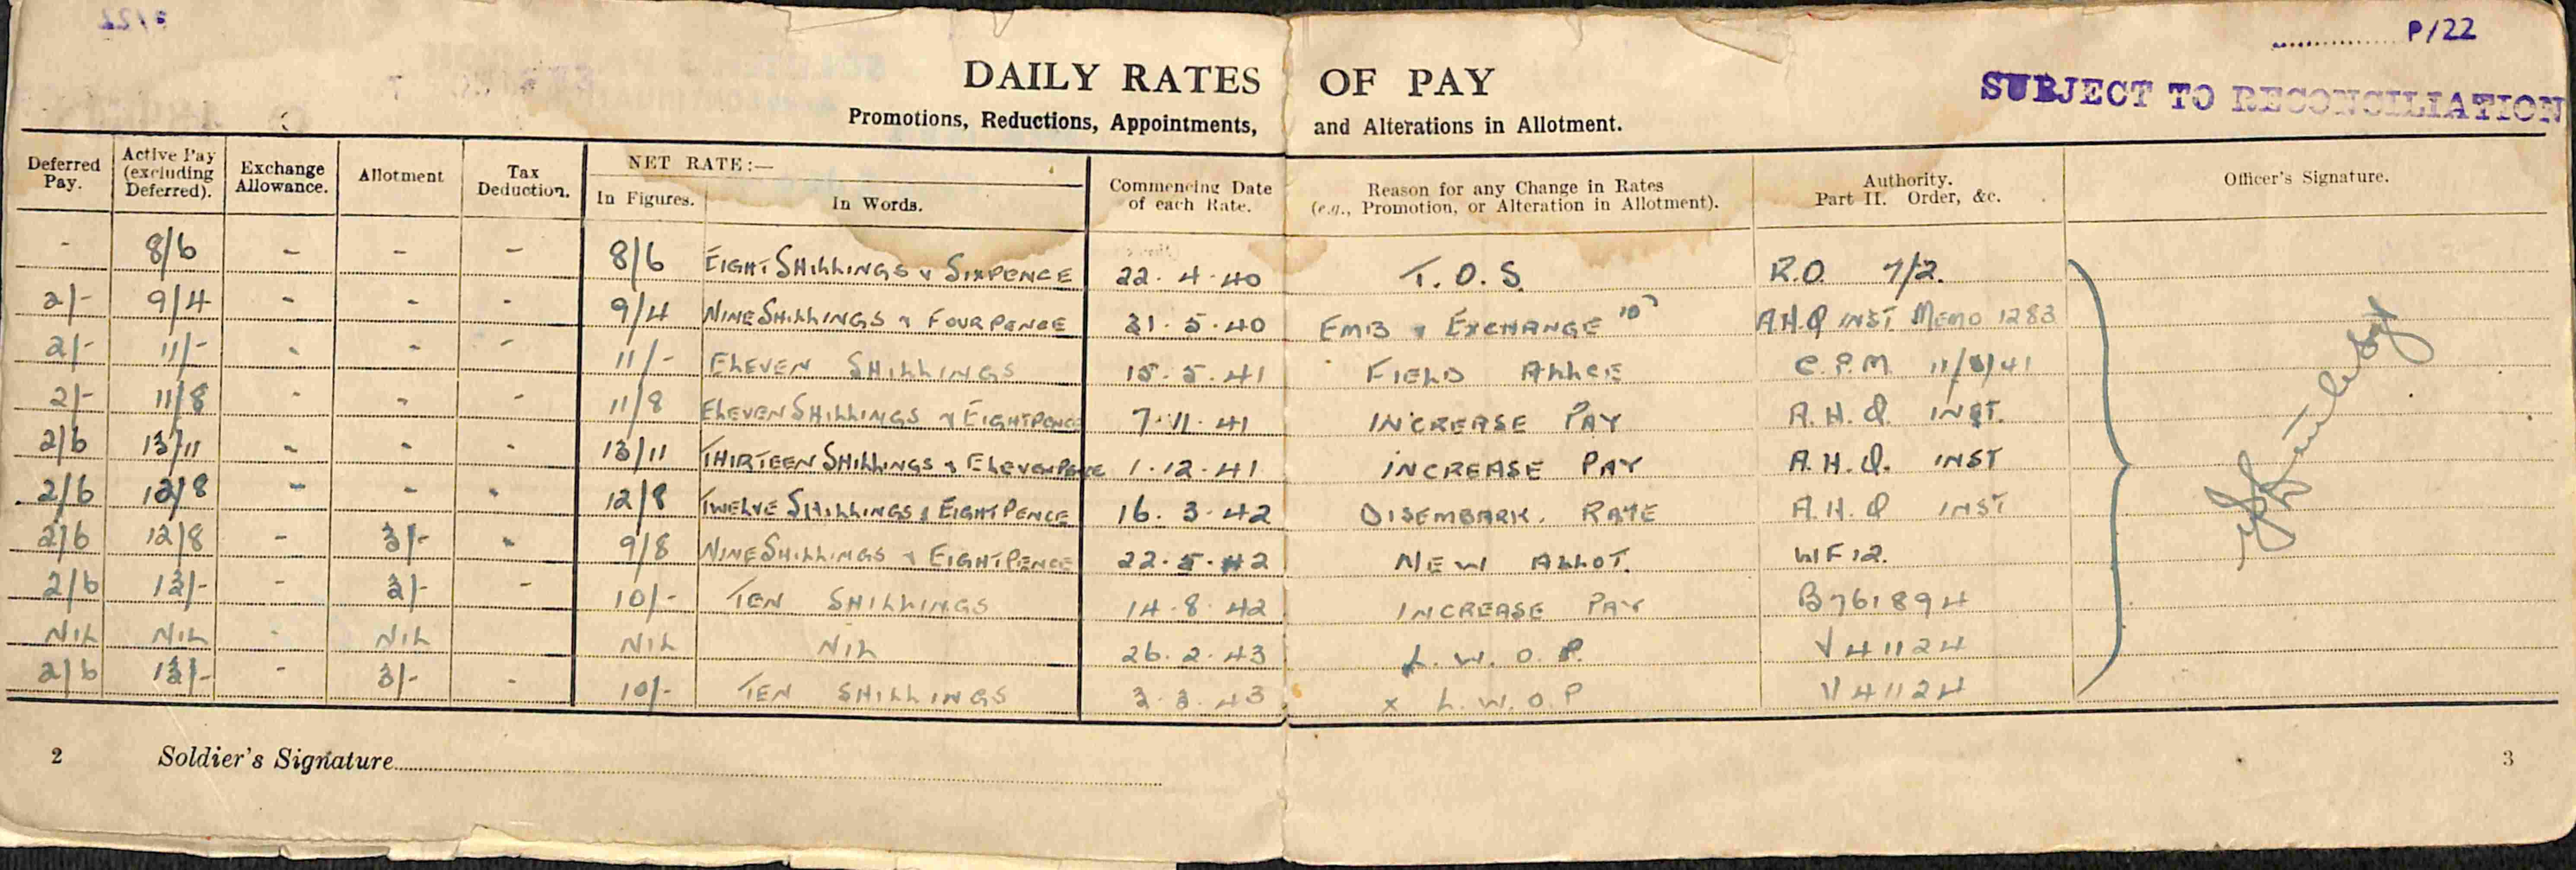 P/22
DAILY RATES OF PAY
SUBJECT TO RECONCILIATION
Promotions, Reductions, Appointments, and Alterations in Allotment.
Deferred Pay. Active Pay (excluding Deferred). Exchange Allowance. Allotment Tax Deduction. NET RATE:— In Figures. In Words. Commencing Date of each Rate. Reason for any Change in Rates (e.g., Promotion, or Alteration in Allotment). Authority. Part II. Order, &c. Officer's Signature.
- 8/6 - - - 8/6 EIGHT SHILLINGS & SIXPENCE 22.4.40 T.O.S. R.O. 7/2.
2/- 9/4 - - - 9/4 NINE SHILLINGS & FOURPENCE 31.5.40 EMB & EXCHANGE A.H.Q INST MEMO 1283
2/- 11/- - - - 11/- ELEVEN SHILLINGS 15.5.41 FIELD ALLCE C.P.M. 11/8/41
2/- 11/8 - - - 11/8 ELEVEN SHILLINGS & EIGHTPENCE 7.11.41 INCREASE PAY A.H.Q. INST.
2/6 13/11 - - - 13/11 THIRTEEN SHILLINGS & ELEVENPENCE 1.12.41 INCREASE PAY A.H.Q. INST
2/6 12/8 - - - 12/8 TWELVE SHILLINGS & EIGHTPENCE 16.3.42 DISEMBARK. RATE A.H.Q INST
2/6 12/8 - 3/- - 9/8 NINE SHILLINGS & EIGHTPENCE 22.5.42 NEW ALLOT. WF12.
2/6 13/- - 3/- - 10/- TEN SHILLINGS 14.8.42 INCREASE PAY B761894
NIL NIL - NIL NIL NIL 26.2.43 L.W.O.P. V41124
2/6 13/- - 3/- - 10/- TEN SHILLINGS 3.3.43 X L.W.O.P V41124
2 Soldier's Signature
3